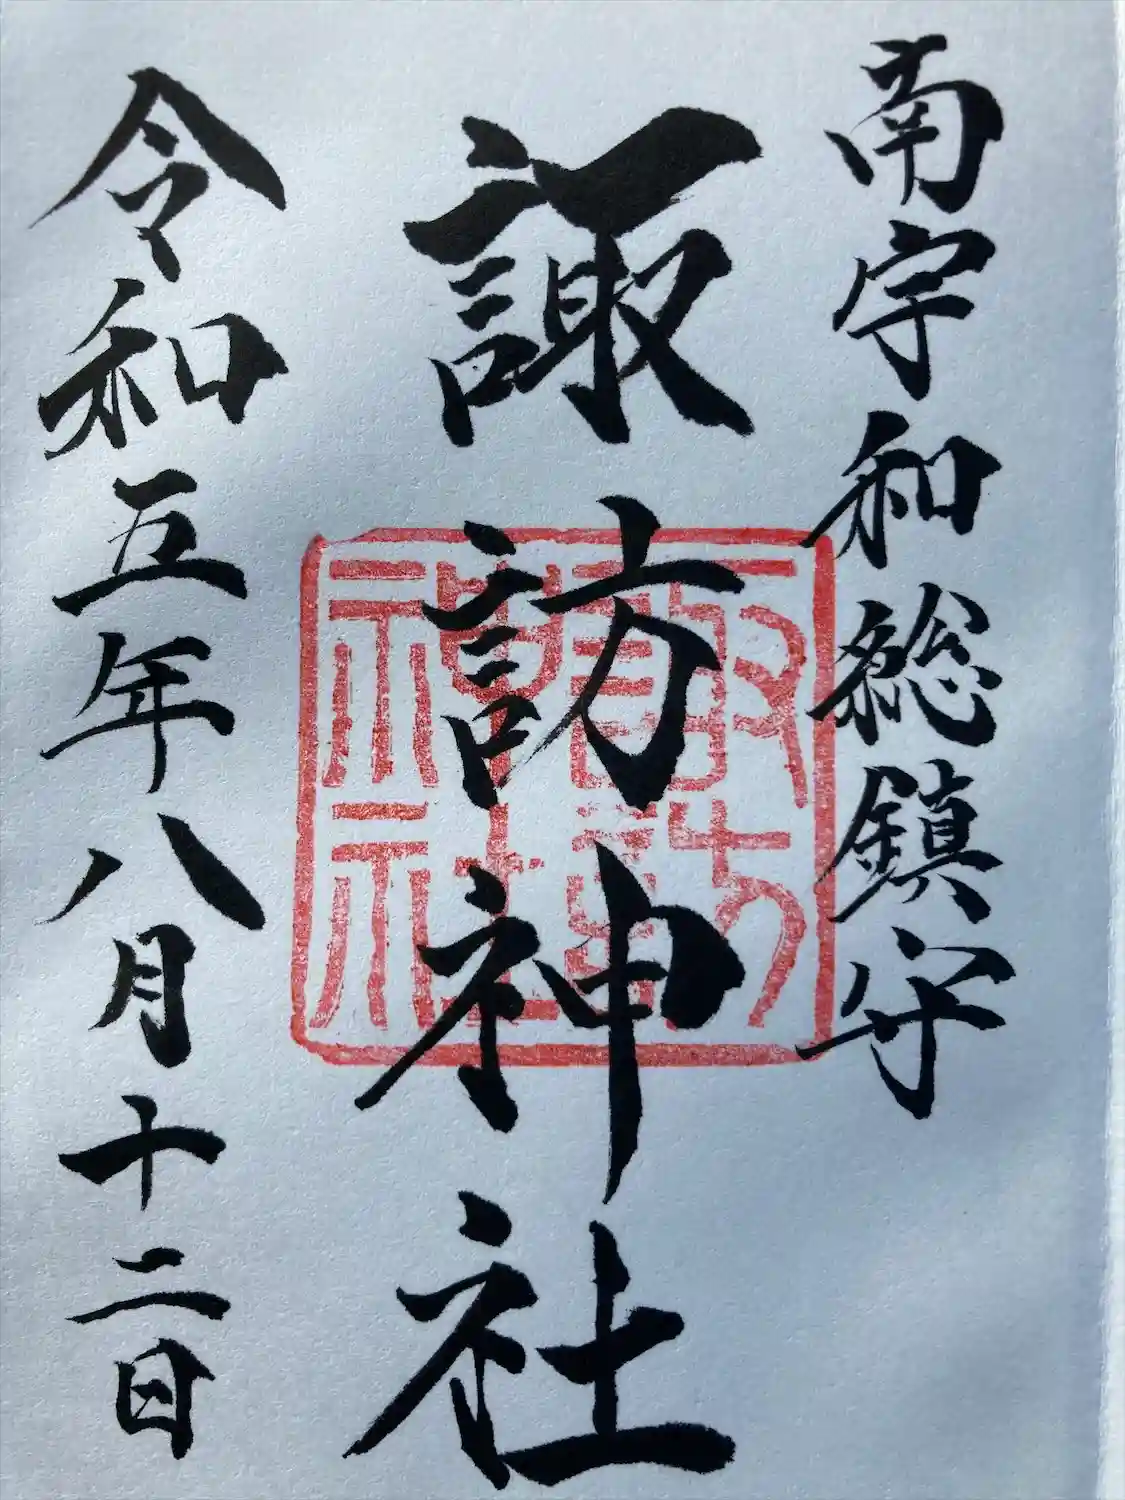 南宇和総鎮守
諏訪神社
諏訪
神社
令和五年八月十二日